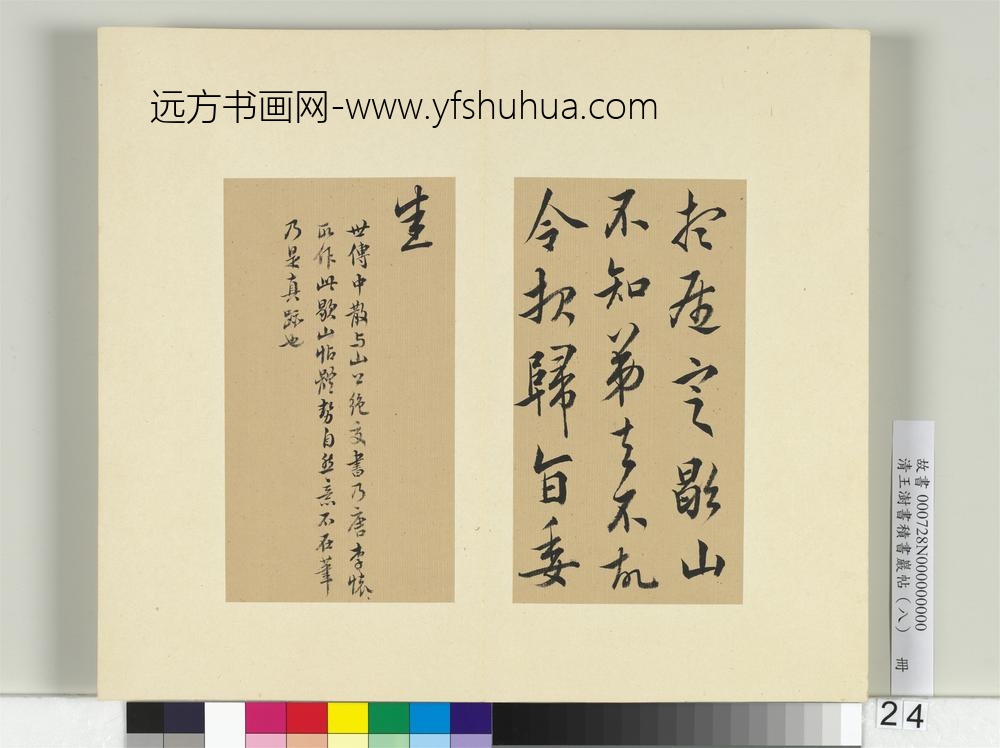 远方书画网-www.yfshuhua.com
屋定歇山
不知弟去不故
令报歸旨委
世傳中散与山公絕交書乃唐李懷
所作此歇山帖體勢自然意不在筆
乃是真跡也
故書 000728N000000000
清王澍書積書巖帖（八） 冊
24